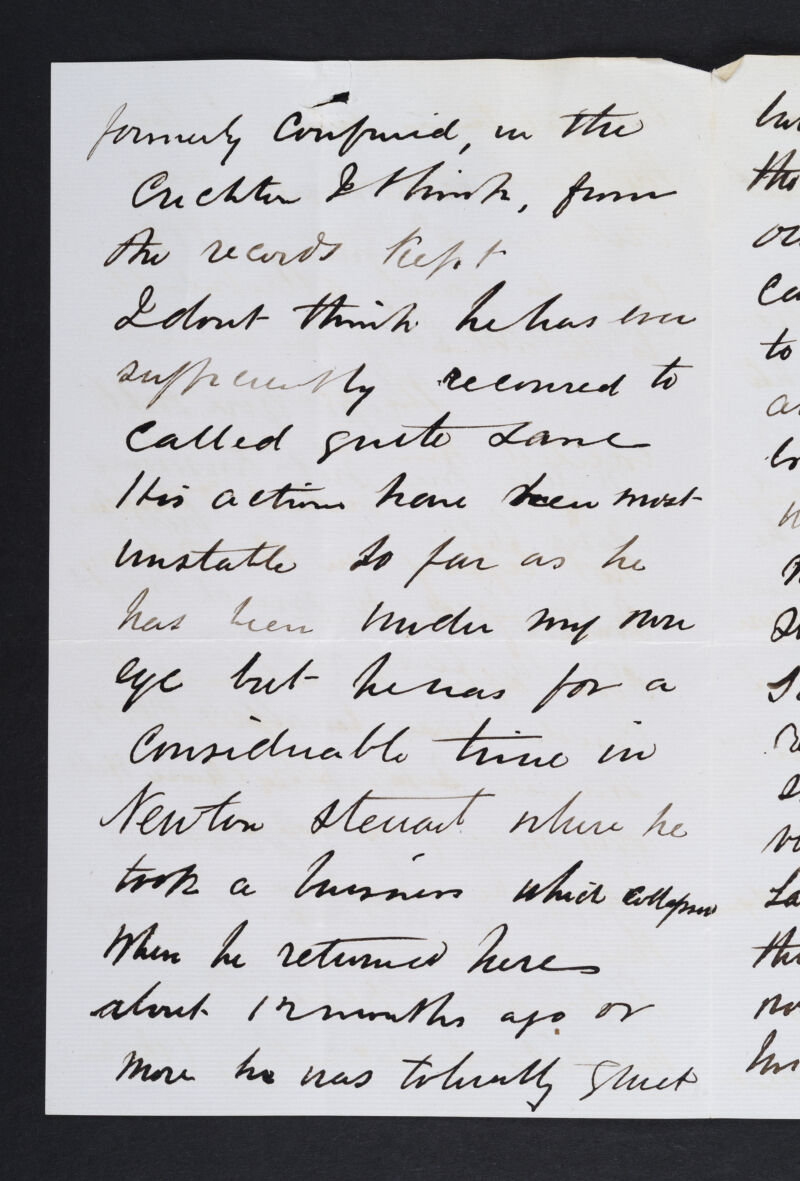 formerly Confined, in the
Crichton I think, from
the records kept
I dont think he has ever
sufficiently recovered to
called quite sane
His actions have been most
unstable so far as he
has been under my own
eye but he was for a
Considerable time in
Newton Stewart where he
took a business which collapsed
When he returned here
about 12 months ago or
more he was tolerably quiet
but
the
to